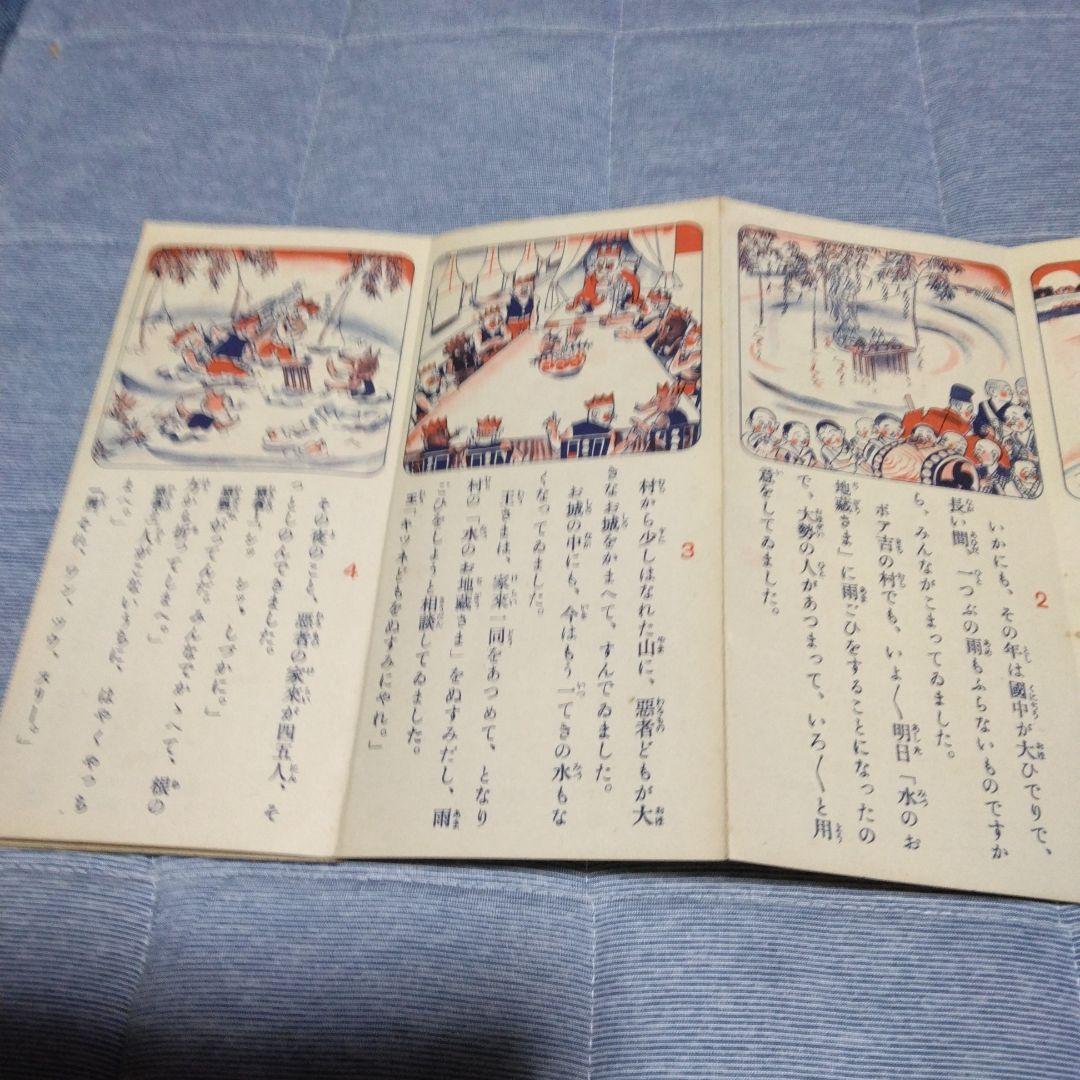 2
いかにも、その年は國中が大ひでりで、
長い間、一つぶの雨もふらないものですか
ら、みんながこまってゐました。
ポア吉の村でも、いよ〱明日「水のお
地藏さま」に雨ごひをすることになったの
で、大勢の人があつまって、いろ〱と用
意をしてゐました。
3
村から少しはなれた山に、惡者どもが大
きなお城をかまへて、すんでゐました。
お城の中にも、今はもう一てきの水もな
くなってゐました。
王さまは、家來一同をあつめて、となり
村の「水のお地藏さま」をぬすみだし、雨
ごひをしようと相談してゐました。
王「キツネどもをぬすみにやれ。」
4
その夜のこと、惡者の家來が四五人、そ
っとしのんできました。
しづかに。」
みんなでかついで、